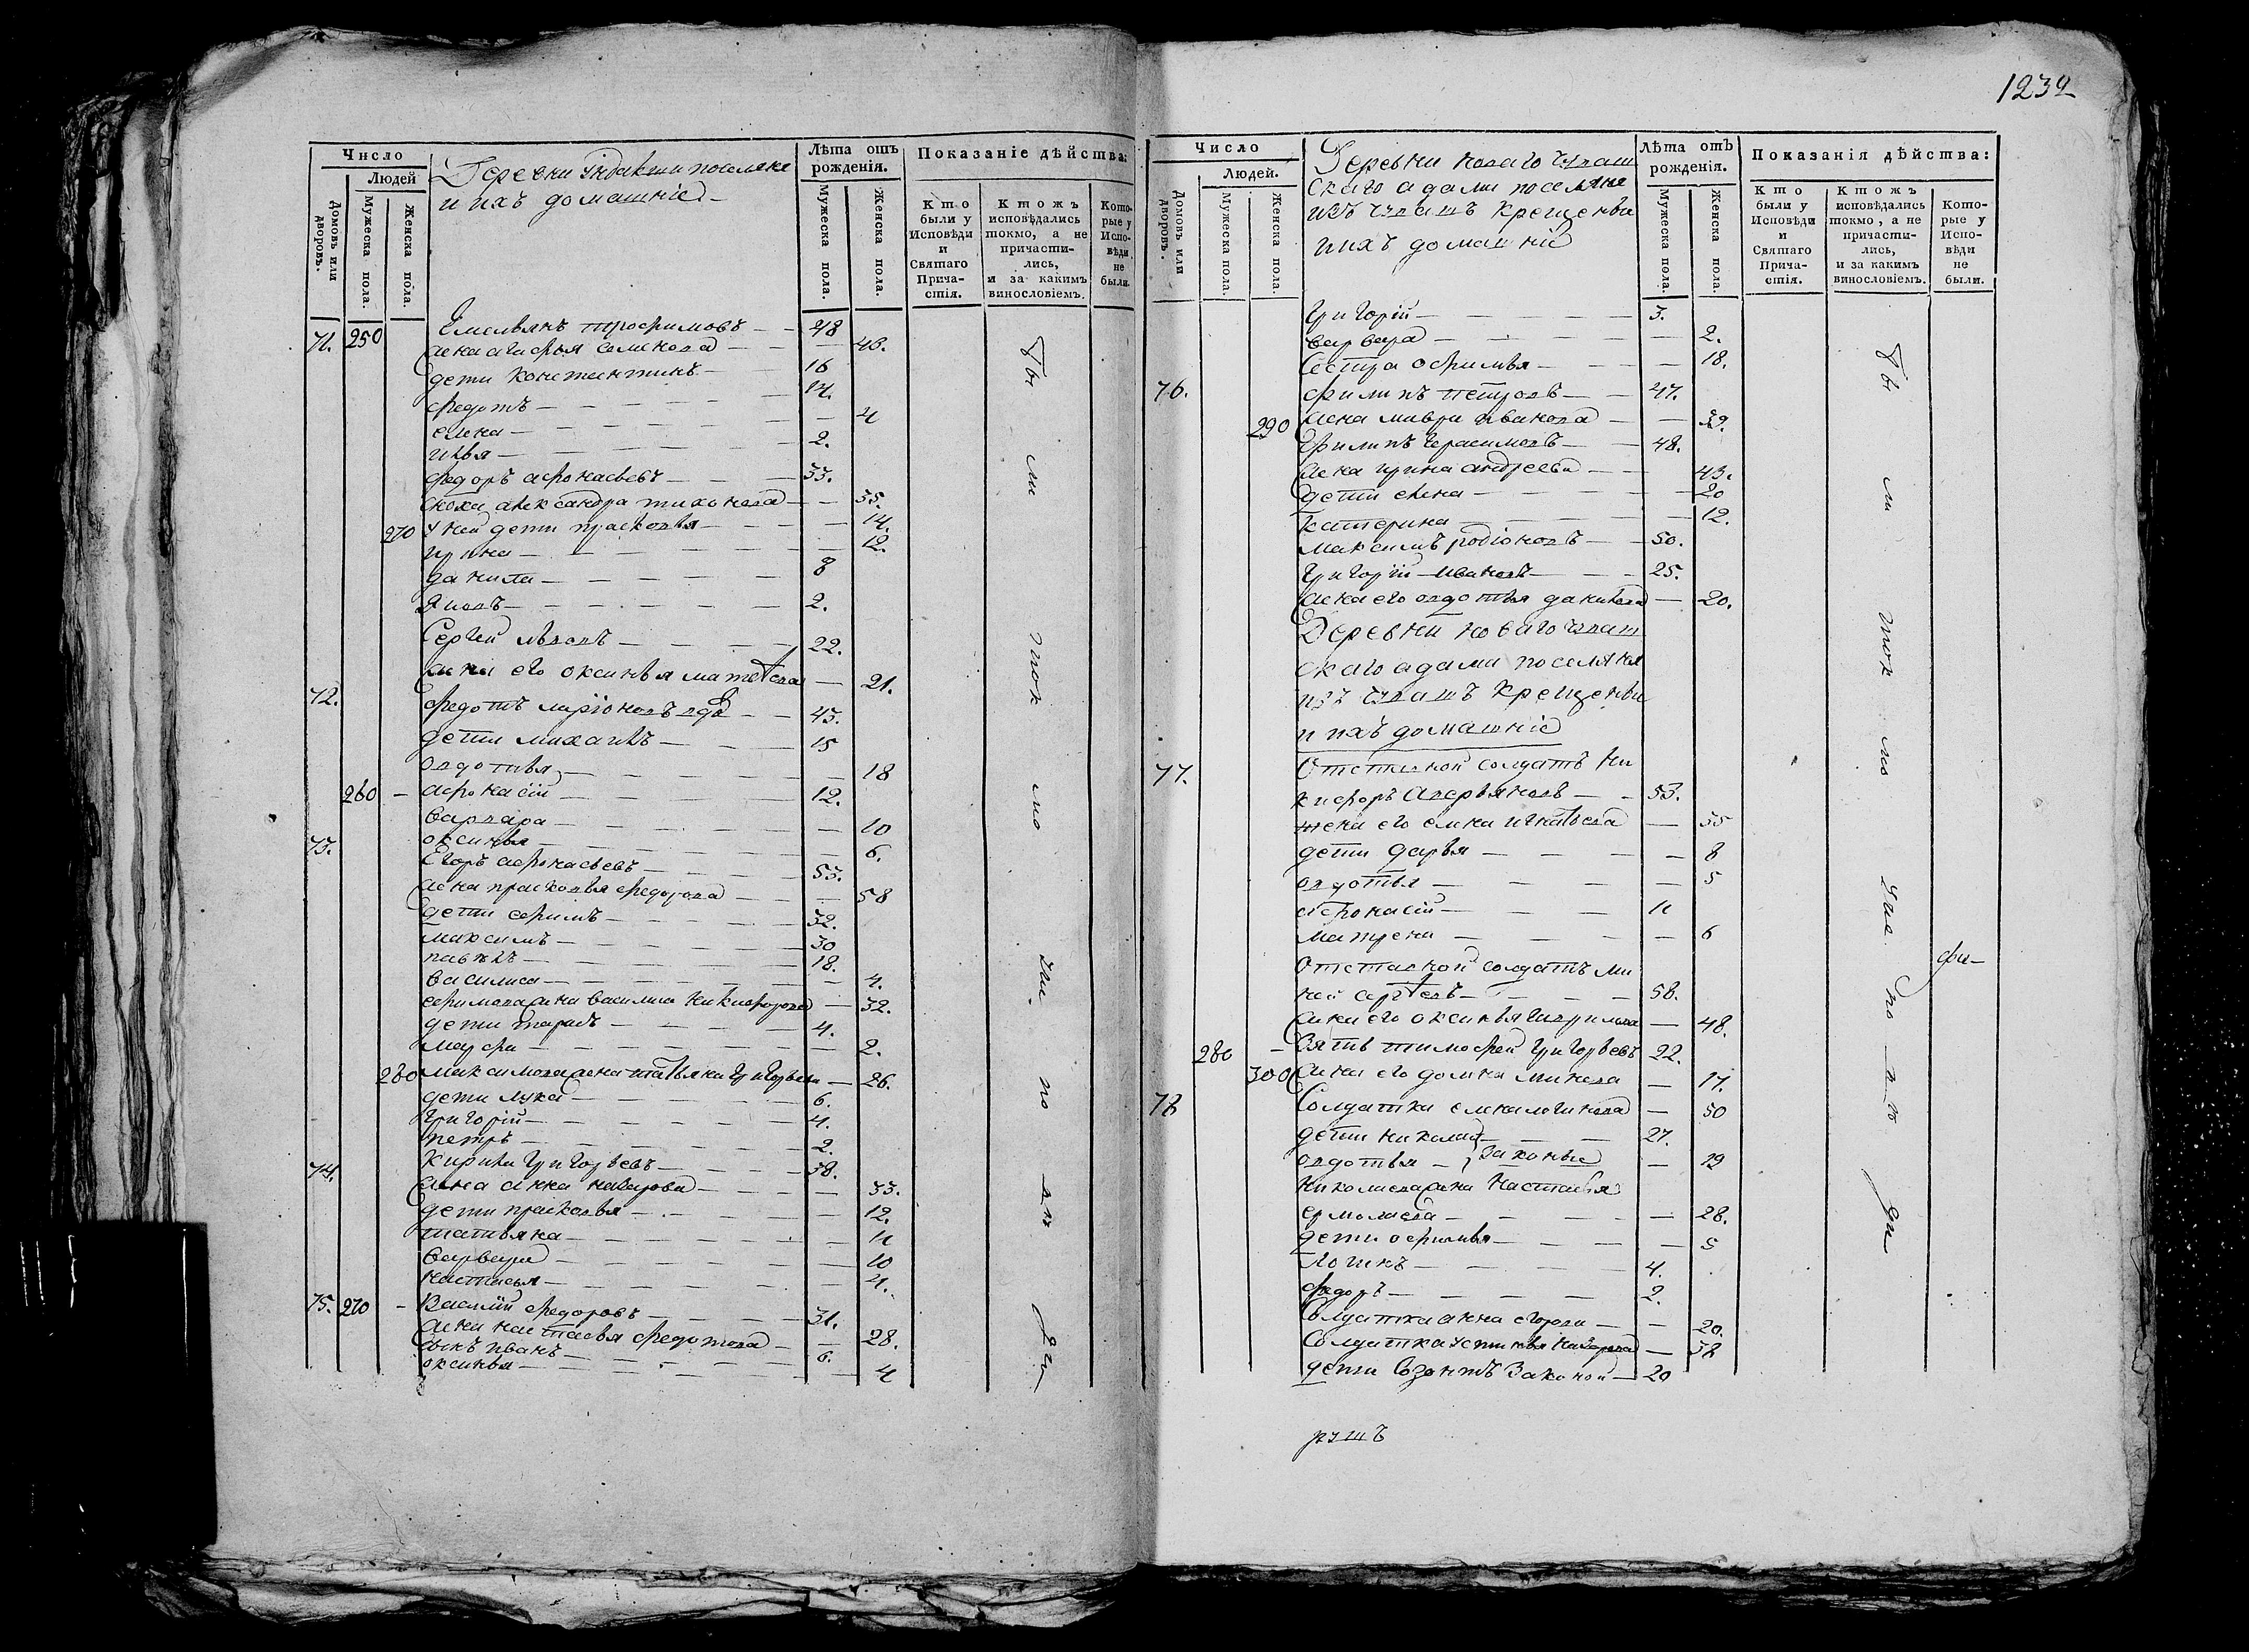 1232
Число
Людей
Домовъ или дворовъ.
Мужеска пола.
Женска пола.
Деревни Индакши поселяне
и ихъ домашніе
Лѣта отъ рожденія.
Мужеска пола.
Женска пола.
Показаніе дѣйства:
Кто были у Исповѣди и Святаго Причастія.
Ктожъ исповѣдались токмо, а не причастились, и за какимъ винословіемъ.
Которые у Исповѣди не были.
71. 250 Емельянъ трофимовъ 48
жена агафья семенова 43.
дети констентинъ 16
федотъ 14.
елена 4
илья 2.
федоръ афонасьевъ 33.
сноха александра тихонова 35.
270 у ней дети прасковья 14.
ирина 12.
данила 8
яковъ 2.
Сергей львовъ 22.
жена его оксинья матвеева 21.
72. федотъ ларіоновъ вдв 43.
дети михаилъ 15
овдотья 18
260 афонасій 12.
варвара 10
оксинья 6.
73. Егоръ афонасьевъ 53.
жена прасковья федорова 58
дети ефимъ 32.
максимъ 30
павелъ 18.
василиса 4.
ефимова жена василиса никифорова 32.
дети тарасъ 4.
марфа 2.
280 максимова жена татьяна григорьева 26.
дети лука 6.
григорій 4.
петръ 2.
74. Кирила григорьевъ 38.
жена анна назарова 33.
дети прасковья 12.
татьяна 11
варвара 10
настасья 4.
75. 270 Василій федоровъ 31.
жена настасья федотова 28.
сынъ иванъ 6.
оксинья 4
Бы
ли
ток
мо
по
Число
Людей.
Домовъ или дворовъ.
Мужеска пола.
Женска пола.
Деревни новаго чуваш
скаго адами поселяне
изъ чувашъ крещены
и ихъ домашніе
Лѣта отъ рожденія.
Мужеска пола.
Женска пола.
Показанія дѣйства:
Кто были у Исповѣди и Святаго Причастія.
Ктожъ исповѣдались токмо, а не причастились, и за какимъ винословіемъ.
Которые у Исповѣди не были.
григорій 3.
варвара 2.
Сестра офимья 18.
76. филипъ петровъ 47.
290 жена мавра иванова 39.
филипъ герасимовъ 48.
жена ирина андреева 43.
дети елена 20
катерина 12.
максимъ родіоновъ 50.
григорій ивановъ 25.
жена его овдотья данилова 20.
Деревни новаго чуваш
скаго адами поселяня
изъ чувашъ крещены
и ихъ домашніе
77. Отставной солдатъ ни
кифоръ аверьяновъ 53.
жена его елена игнатьева 55
дети дарья 8
овдотья 5
афонасій 11
матрена 6
Отставной солдатъ ми
ней сергѣевъ 58.
жена его оксинья гаврилова 48.
280 Зять тимофей григорьевъ 22.
300 жена его домна минеева 17.
78 Солдатка елена логинова 50
дети николай 27.
овдотья законые 19
николаева жена настасья
ермолаева 28.
дети офимья 5
Логинъ 4.
федоръ 2.
Солдатка анна егорова 20.
Солдатка устинья назарова 38
дети созонтъ законой 20
Бы
ли
ток
мо
по